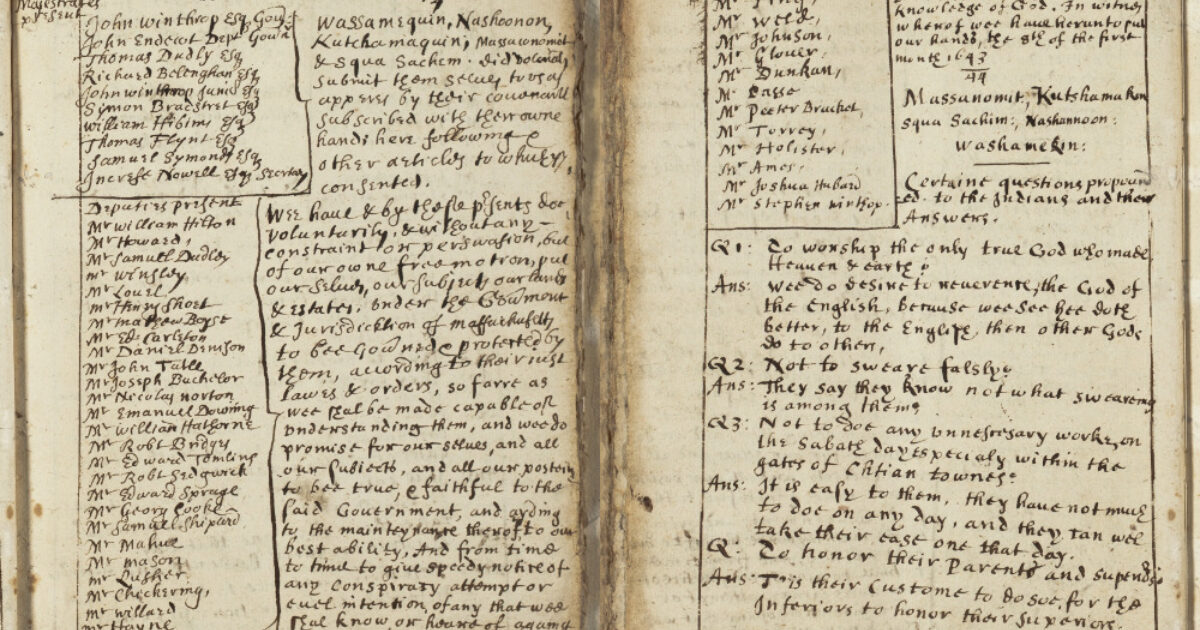 Magestrates
present
John Winthrop Esq Gou
John Endecot Dept Gour
Thomas Dudly Esq
Richard Belengham Esq
John Winthrop Junio Esq
Simon Bradstret Esq
William Hibins Esq
Thomas Flynt Esq
Samuel Symonds Esq
Increse Nowell Esq Secretary
Wassamequin, Nashoonon,
Kutchamaquin, Massaconomit
& Squa Sachem. did
submit them selues to
apperes by their covenant
subscribed with their owne
hands here following &
other articles to
consented.
Deputies present
Mr William Hilton
Mr Howard,
Mr Samuel Dudley
mr Winsley
Mr Lovel
mr Henry Short
Mr mathew Boyse
Mr Ed: Carleton
Mr Daniel Denison
Mr John Tutle
Mr Joseph Bachelor
Mr Nicolas norton
Mr Emanuel Downing
Mr William Hathorne
Mr Robt Bridges
Mr Edward Tomlins
Mr Robt Sedgwick
Mr Edward Sprage
Mr Georg Cooke
Mr Samuel Shipard
Mr Mahue
Mr mason
mr Lusher
Mr Chickering,
mr willard
mr Hayne
Wee haue & by these psents doe
voluntarily, & without any
constraint or perswasion, but
of our owne free motion, put
our selues, our subjects our lands
& estates, vnder the Gouvment
& Jurisdicktion of
to bee Gouned & protected by
them, according to their iust
lawes & orders, so farre as
wee shal be made capable of
vnderstanding them, and wee do
promise for our selves, and all
our subiects, and all our posterity
to bee true, & faithful to the
said Government, and ayding
to the maintenance therof to our
best ability, And from time
to time to give speedy notice of
any conspiracy attempt or
euel intention, of any that wee
shal know or heare of against
Mr Weld,
Mr Johnson,
Mr Glover,
Mr Dunkan,
Mr Passe
Mr Peeter Bracket,
Mr Torrey,
Mr Holister,
Mr Ames,
Mr Joshua Hubard
Mr Stephen Winthrop.
knowledge of God. In witnes
wherof wee have herunto put
our hands, the 8th of the first
month 1643
44
Massanomit, Kutshamakin
squa Sachim:, Nashannoon:
Washamekin:
Certaine questions propoun
ed. to the Indians and their
Answers.
Q 1: To worship the only true God who made
Heaven & earth:
Ans: wee do desire to reverence, the God of
the English, because wee see hee doth
better, to the English, then other Gods
do to others,
Q 2: Not to sweare falsly:
Ans: They say they know not what swearing
is among them:
Q 3: Not to doe any vnnescesary worke, on
the Sabath day especialy within the
gates of Chtian townes:
Ans: It is easy to them, they have not much
to doe on any day, and they can wel
take their ease one that day.
Q: To honor their Parents and
Ans: Tis their Custome to do soe, for the
Inferiors to honor their Superiors.